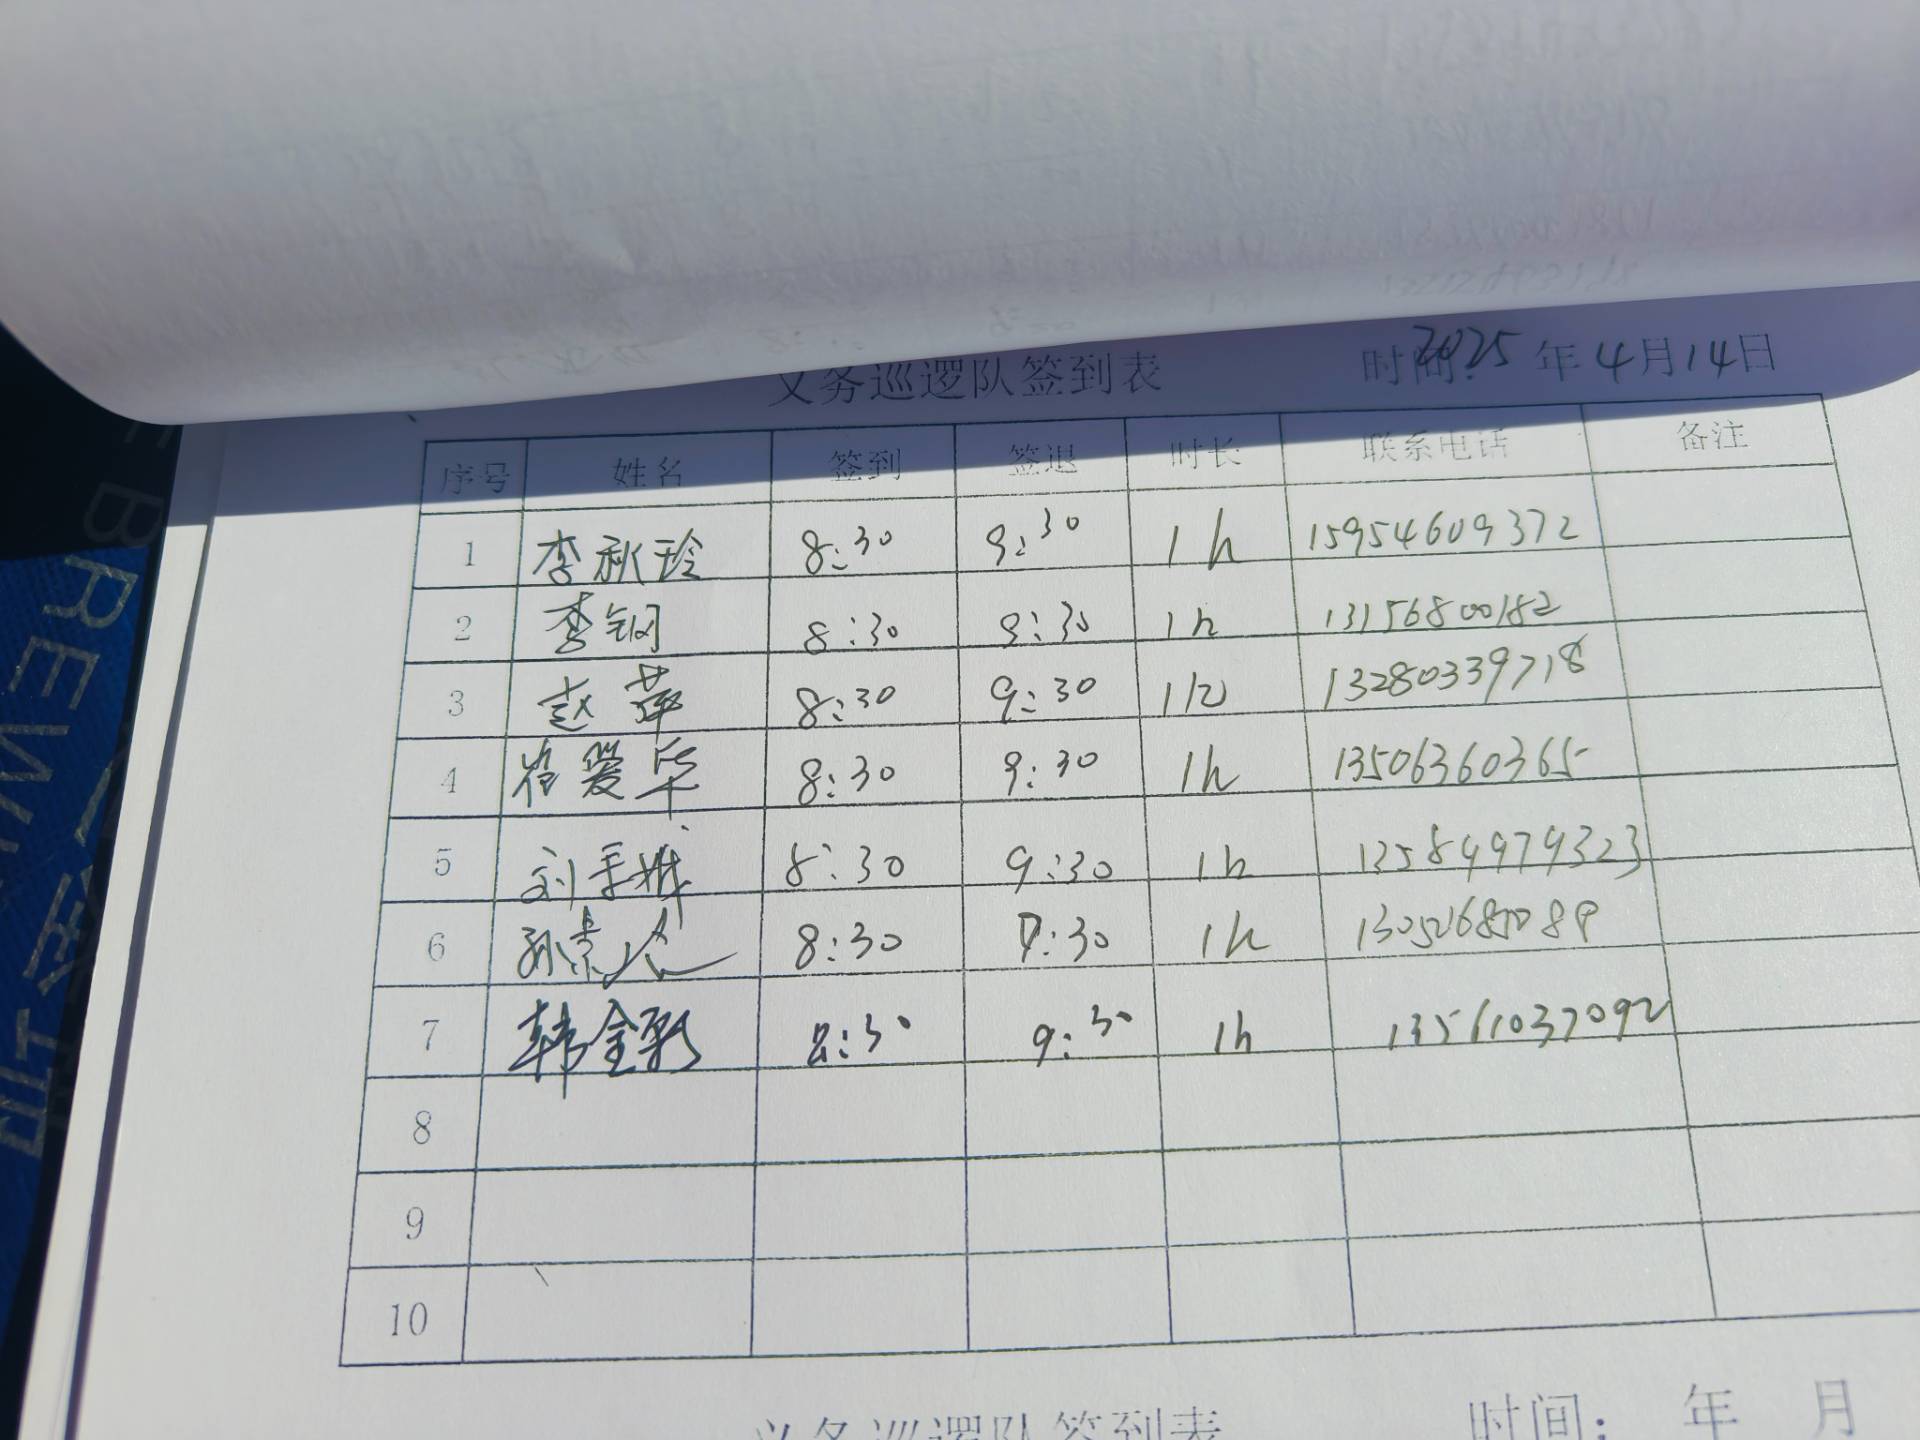 义务巡逻队签到表 时间:2025年4月14日
序号 姓名 签到 签退 时长 联系电话 备注
1 李秋玲 8:30 9:30 1h 15954609372
2 李钢 8:30 9:30 1h 13156800182
3 赵萍 8:30 9:30 1h 13280339718
4 崔爱华 8:30 9:30 1h 13506360365
5 刘 8:30 9:30 1h 13584979323
6 孙 8:30 9:30 1h
7 韩金彩 8:30 9:30 1h 13561037092
8
9
10
义务巡逻队签到表 时间: 年 月